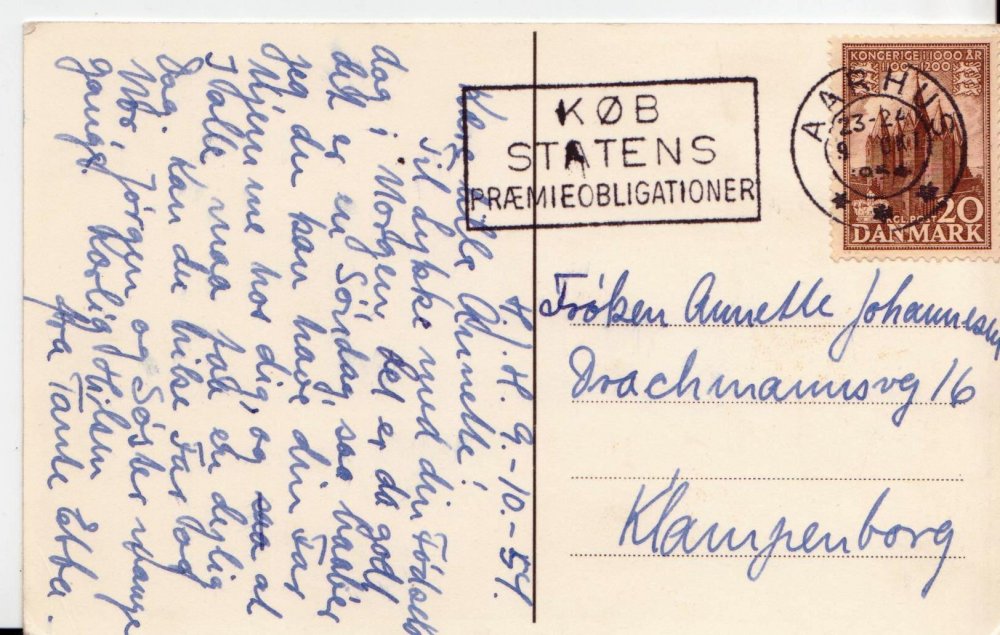 H. H. 9.-10.-54.
Kære lille Annette!
Til Lykke med din Fødsels-
dag i Morgen, det er da godt
det er en Søndag, saa haaber
jeg du kan have din Far
hjemme hos dig, og at
I alle maa faa en dejlig
Dag. Kan du hilse Far og
Mor, Jørgen og Søster mange
gange. Kærlig Hilsen
fra Tante Ebba.
KØB
STATENS
PRÆMIEOBLIGATIONER
KONGERIGE I 1000 ÅR
1100 1200
AARHUS
23-24
9
1954
20
DANMARK
Frøken Annette Johannesen
Drachmannsvg 16
Klampenborg